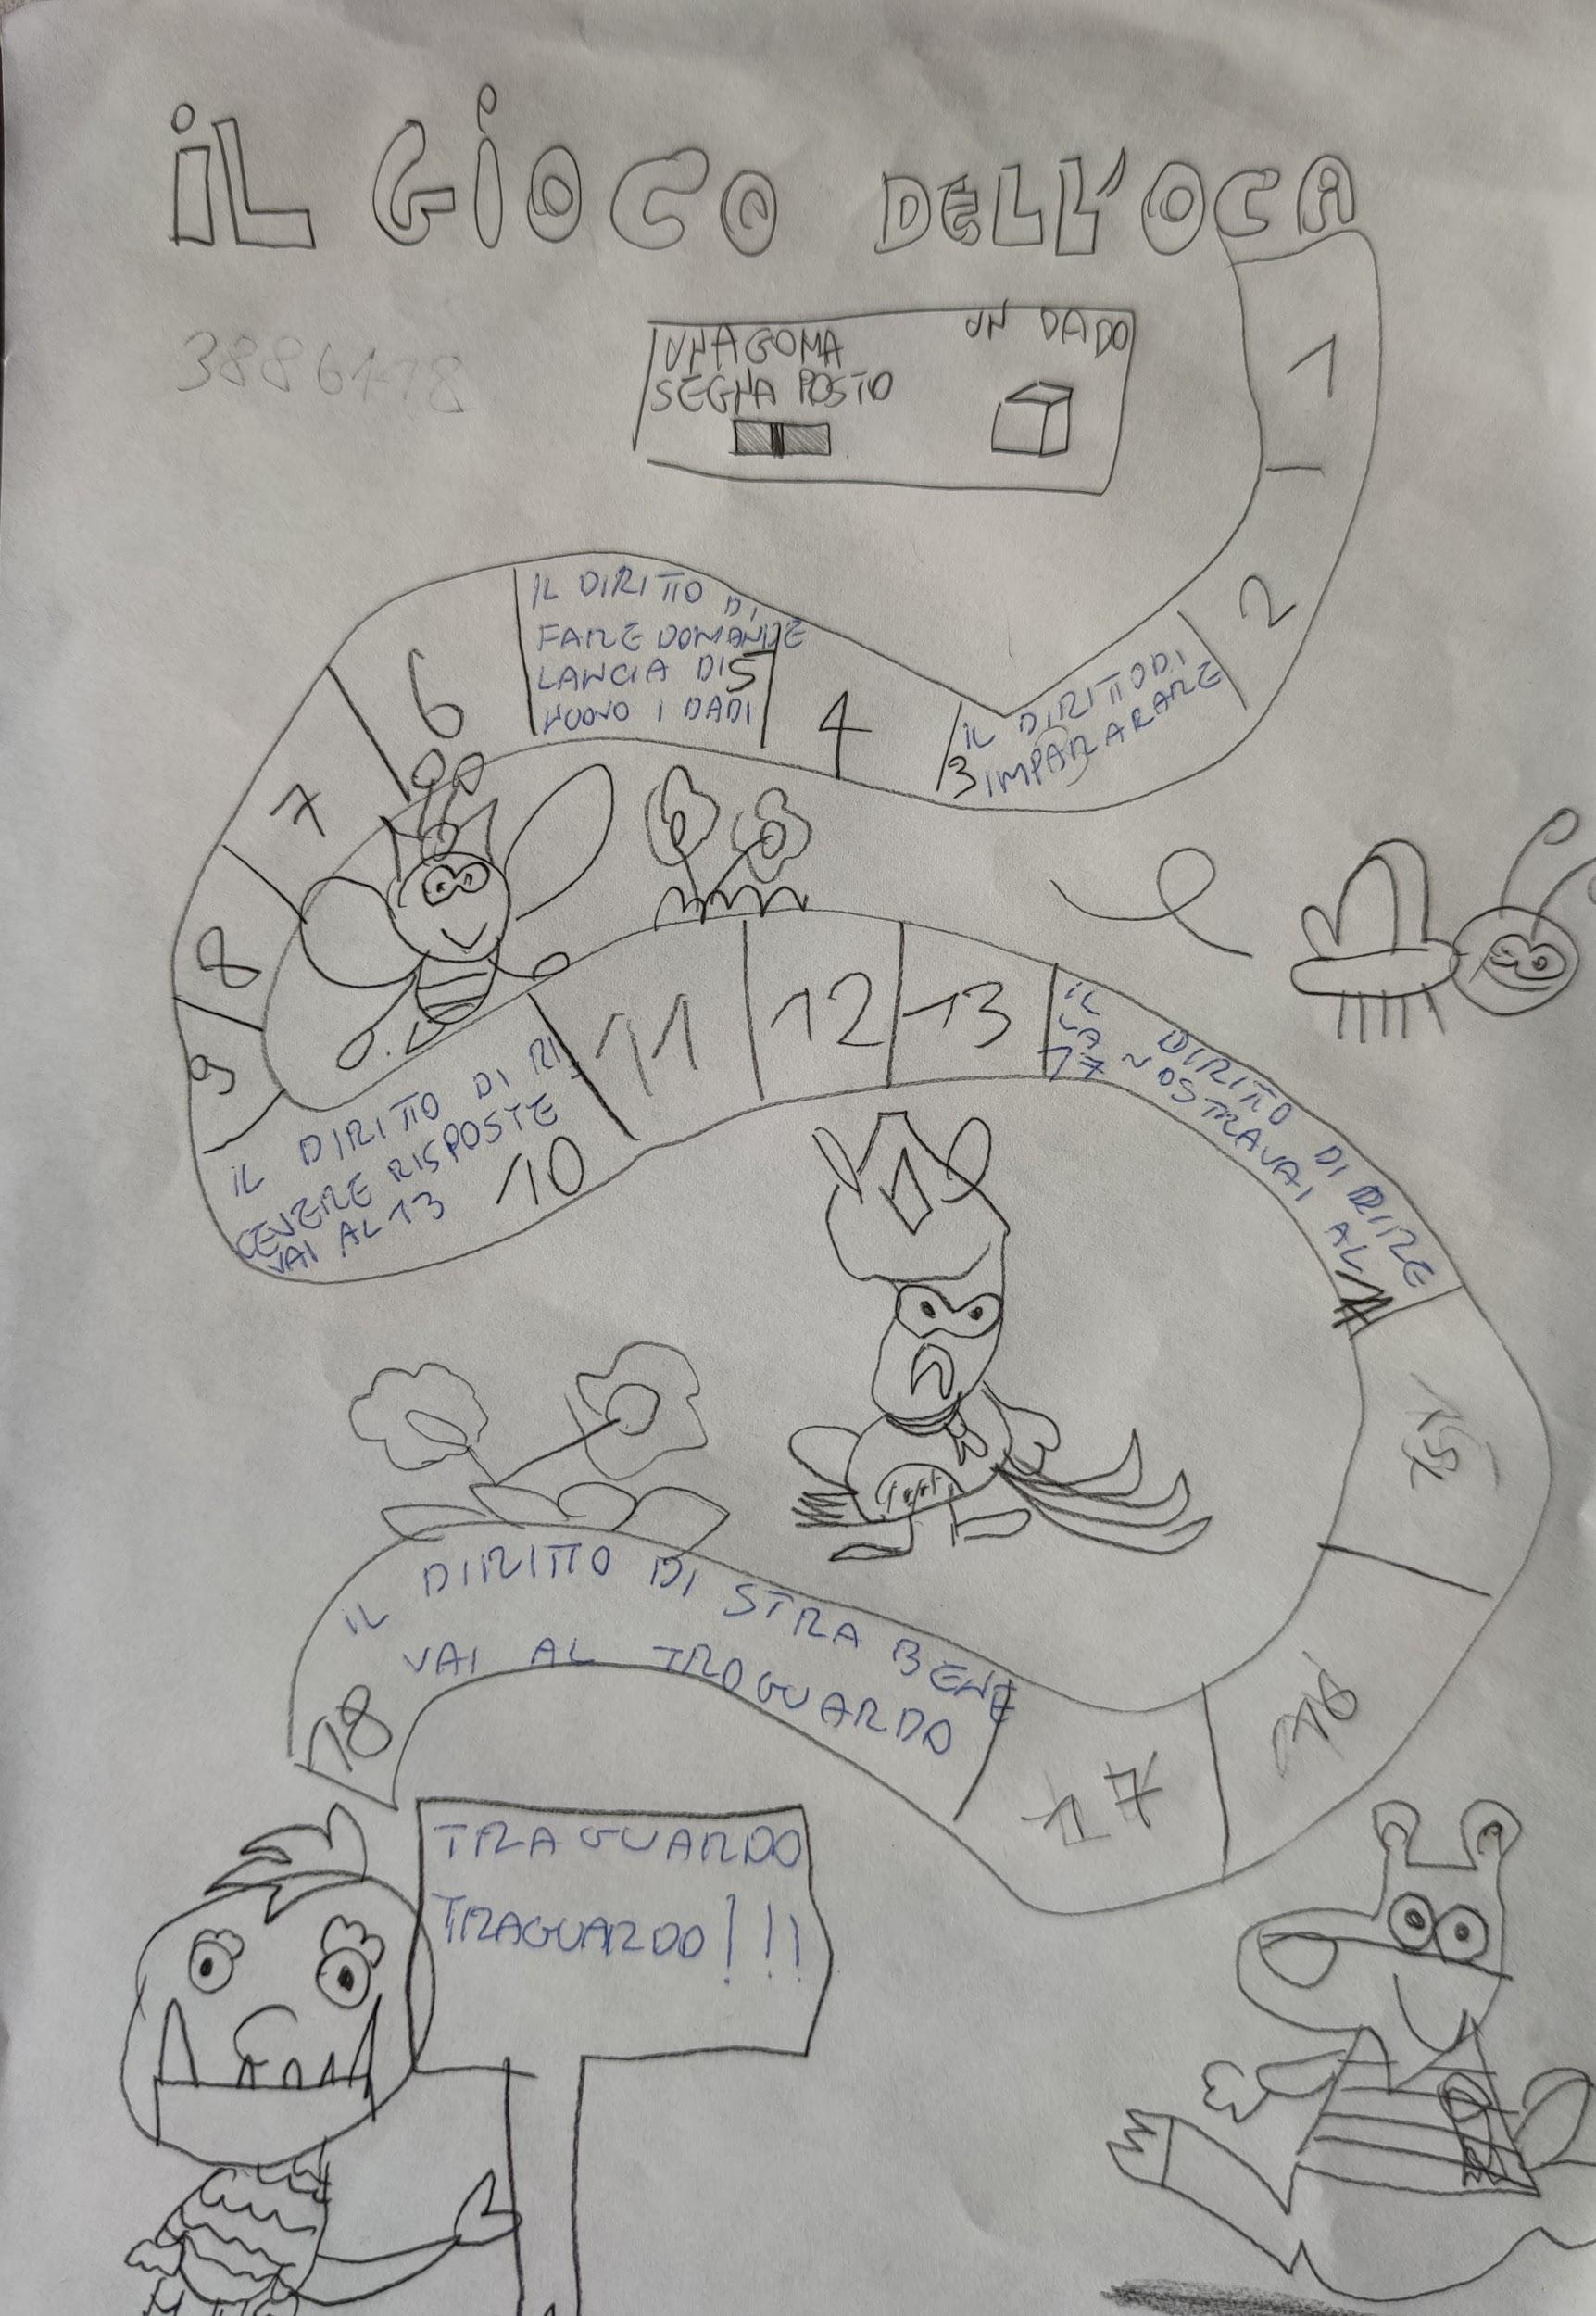 IL GIOCO DELL'OCA
UNA GOMA
SEGNA POSTO
UN DADO
1
2
IL DIRITTO DI
3 IMPARARARE
4
IL DIRITTO DI
FARE DOMANDE
LANCIA DI 5
NUOVO I DADI
6
7
8
9
IL DIRITTO DI RI
CEVERE RISPOSTE
VAI AL 13
10
11
12
13
IL DIRITTO DI DRIRE
LA NOSTRA VAI AL
17
15
16
17
IL DIRITTO DI STRA BENE
VAI AL TROGUARDO
18
TRAGUARDO
TRAGUARDO!!!